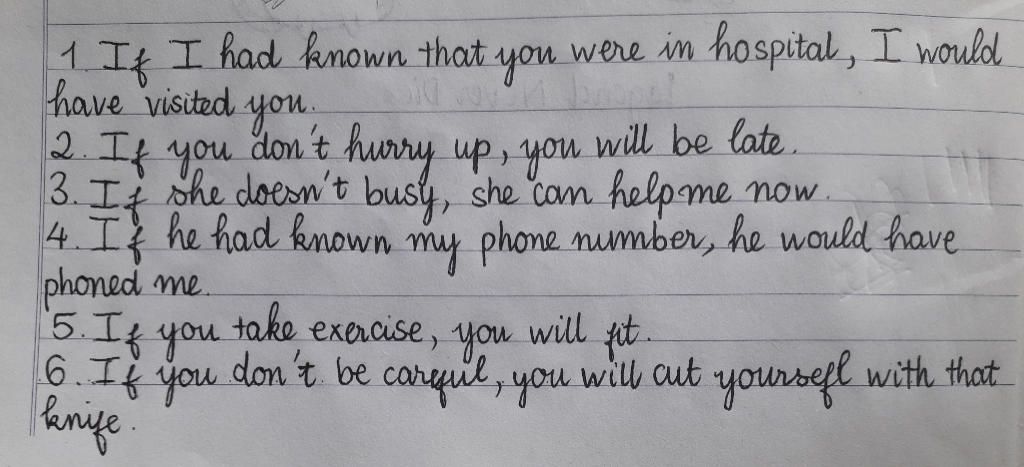 1 If I had known that you were in hospital, I would
have visited you.
2. If you don't hurry up, you will be late.
3. If she doesn't busy, she can help me now.
4. If he had known my phone number, he would have
phoned me.
5. If you take exercise, you will fit.
6. If you don't be careful, you will cut yoursefl with that
knife.